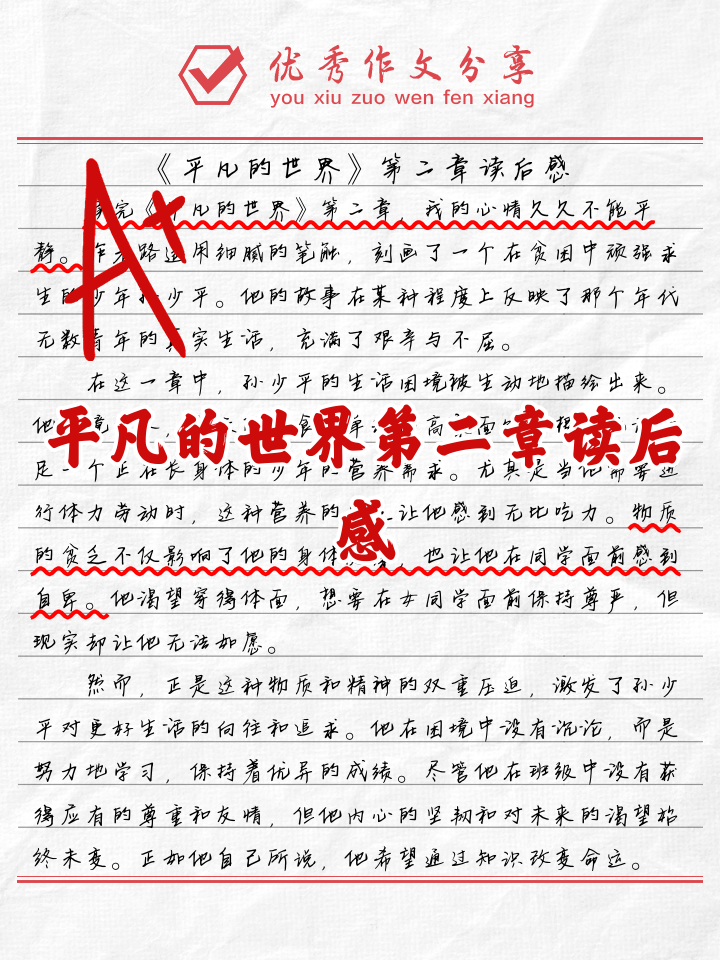 优秀作文分享
you xiu zuo wen fen xiang
《平凡的世界》第二章读后感
A+
读完《平凡的世界》第二章，我的心情久久不能平
静。作者路遥用细腻的笔触，刻画了一个在贫困中顽强求
生的少年孙少平。他的故事在某种程度上反映了那个年代
无数青年的真实生活，充满了艰辛与不屈。
在这一章中，孙少平的生活困境被生动地描绘出来。
平凡的世界第二章读后
足一个正在长身体的少年的营养需求。尤其是当他需要进
行体力劳动时，这种营养的 让他感到无比吃力。物质
感
的贫乏不仅影响了他的身体 ，也让他在同学面前感到
自卑。他渴望穿得体面，想要在女同学面前保持尊严，但
现实却让他无法如愿。
然而，正是这种物质和精神的双重压迫，激发了孙少
平对更好生活的向往和追求。他在困境中没有沉沦，而是
努力地学习，保持着优异的成绩。尽管他在班级中没有获
得应有的尊重和友情，但他内心的坚韧和对未来的渴望始
终未变。正如他自己所说，他希望通过知识改变命运。